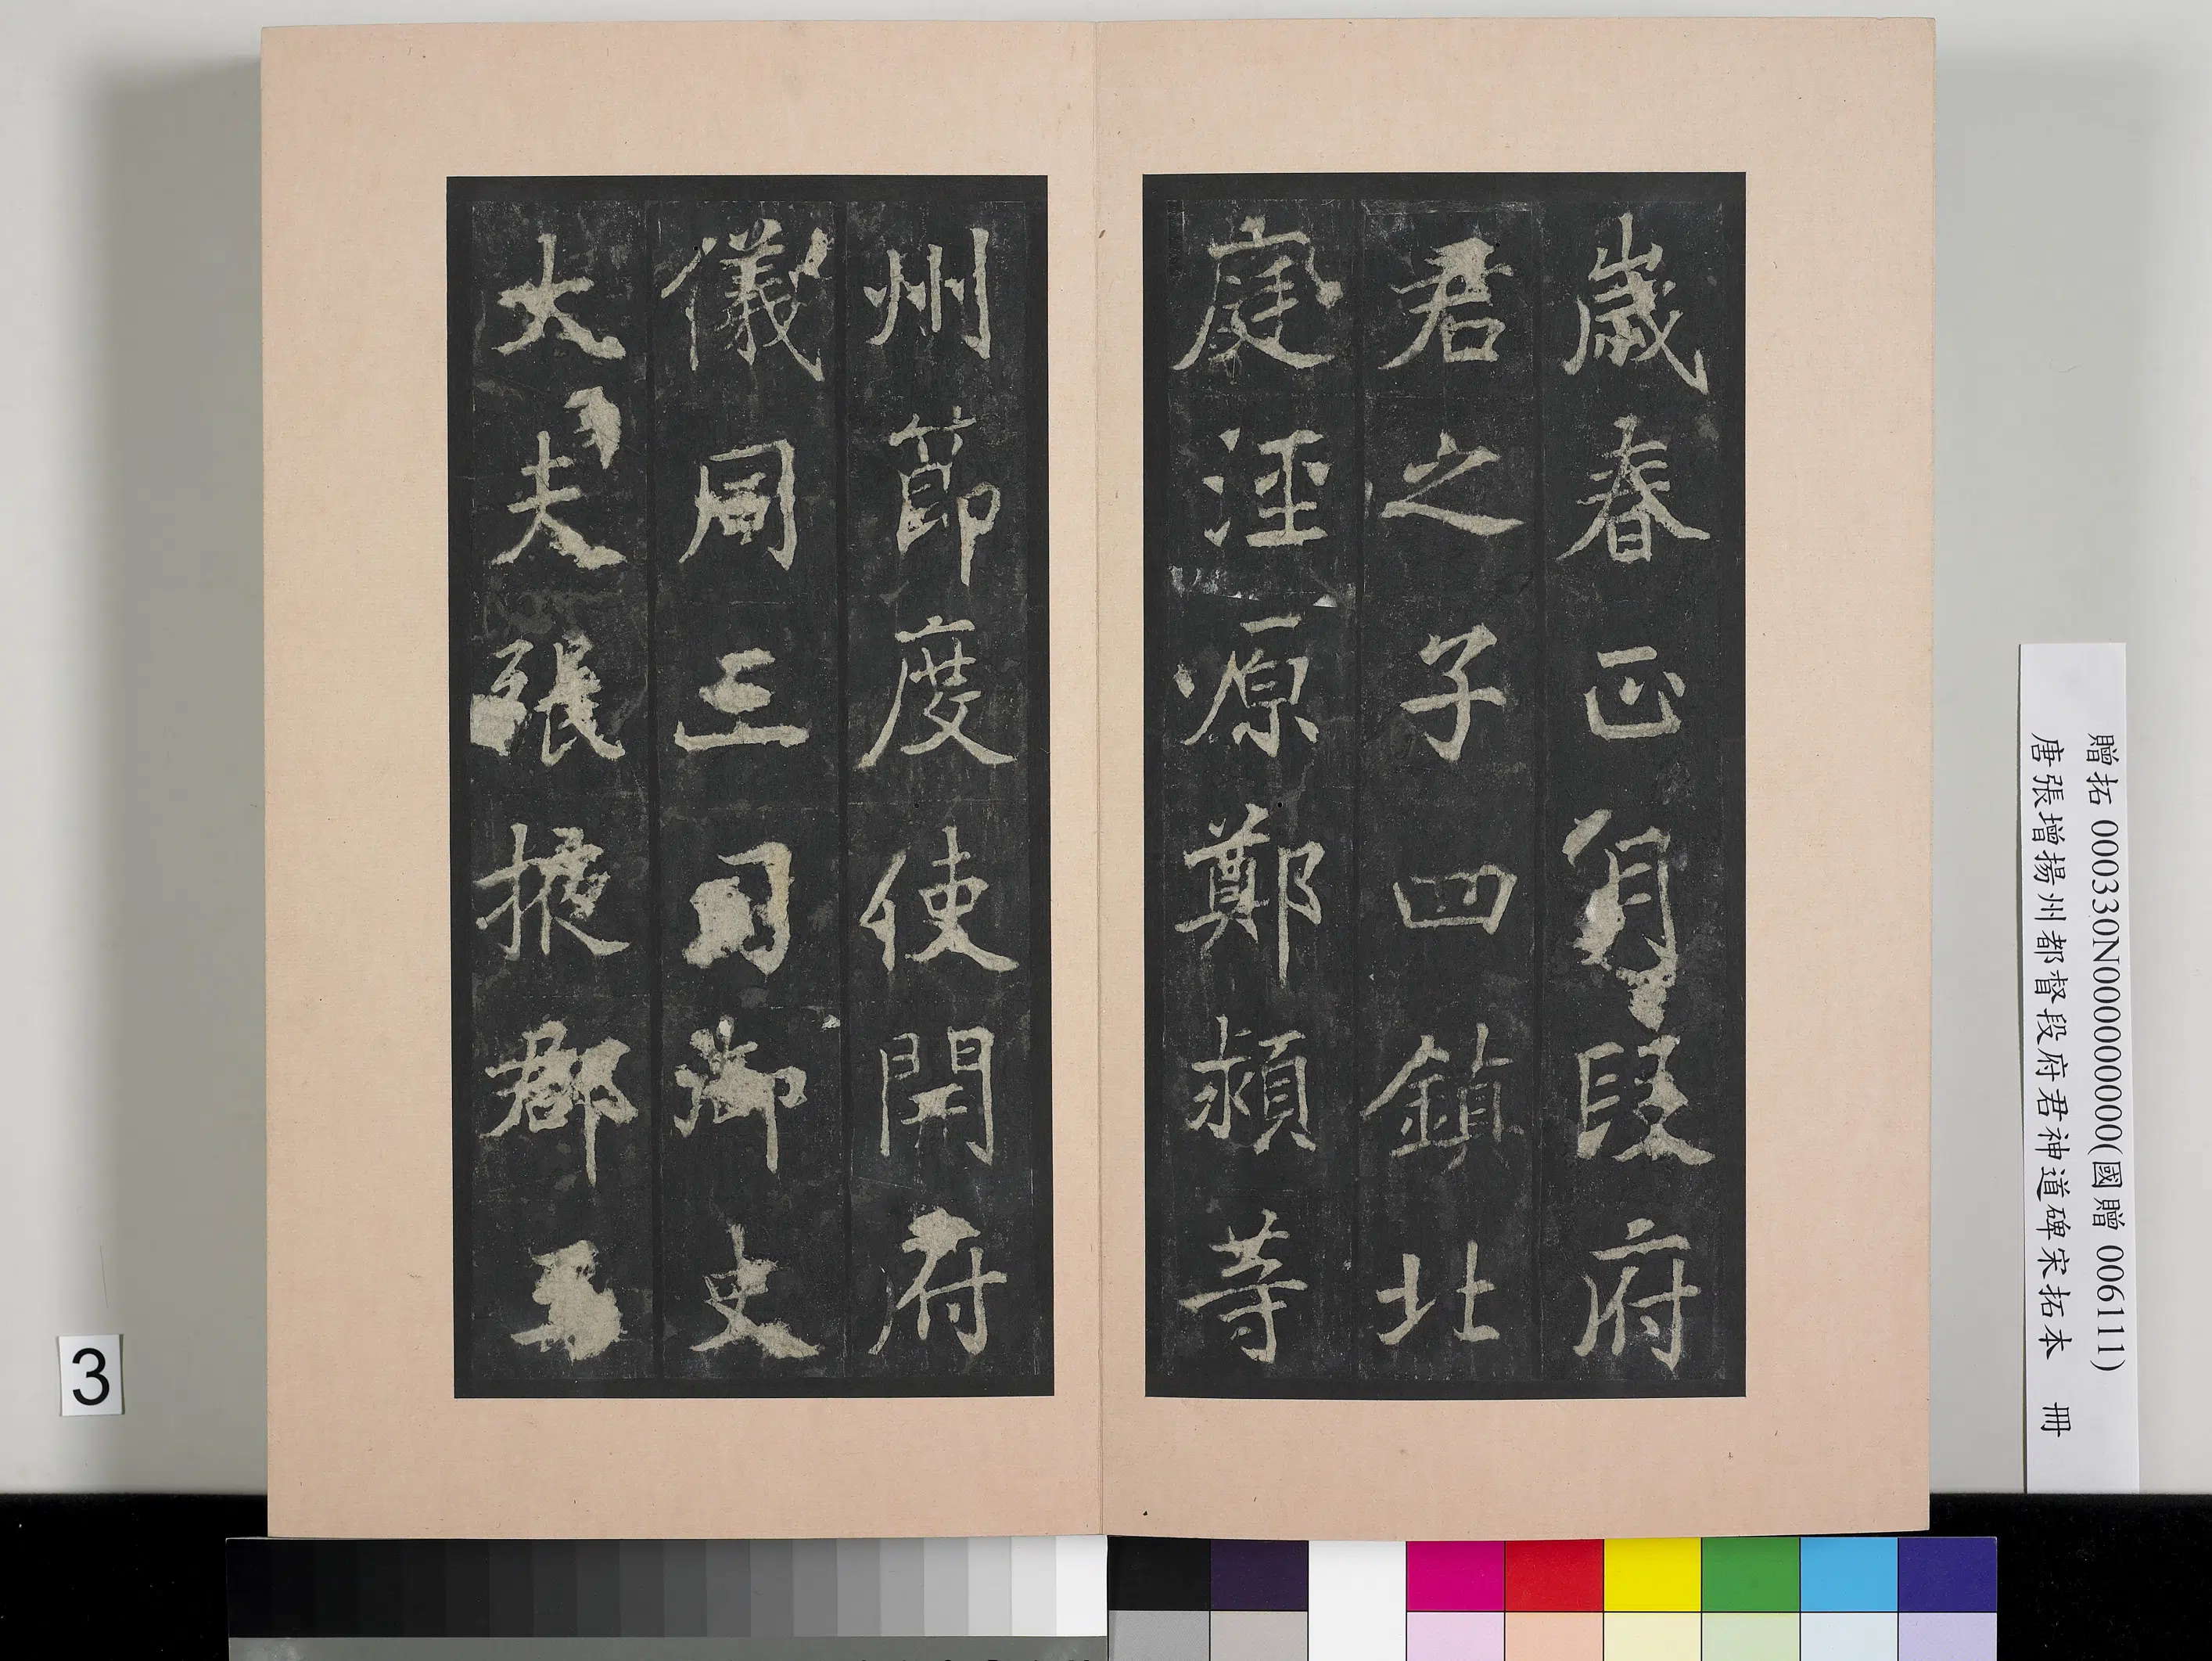 歲春正月段府
君之子四鎮北
庭涇原鄭潁等
州節度使開府
儀同三司御史
大夫張掖郡王
贈拓 000330N000000000(國贈 006111)
唐張增揚州都督段府君神道碑宋拓本 冊
3